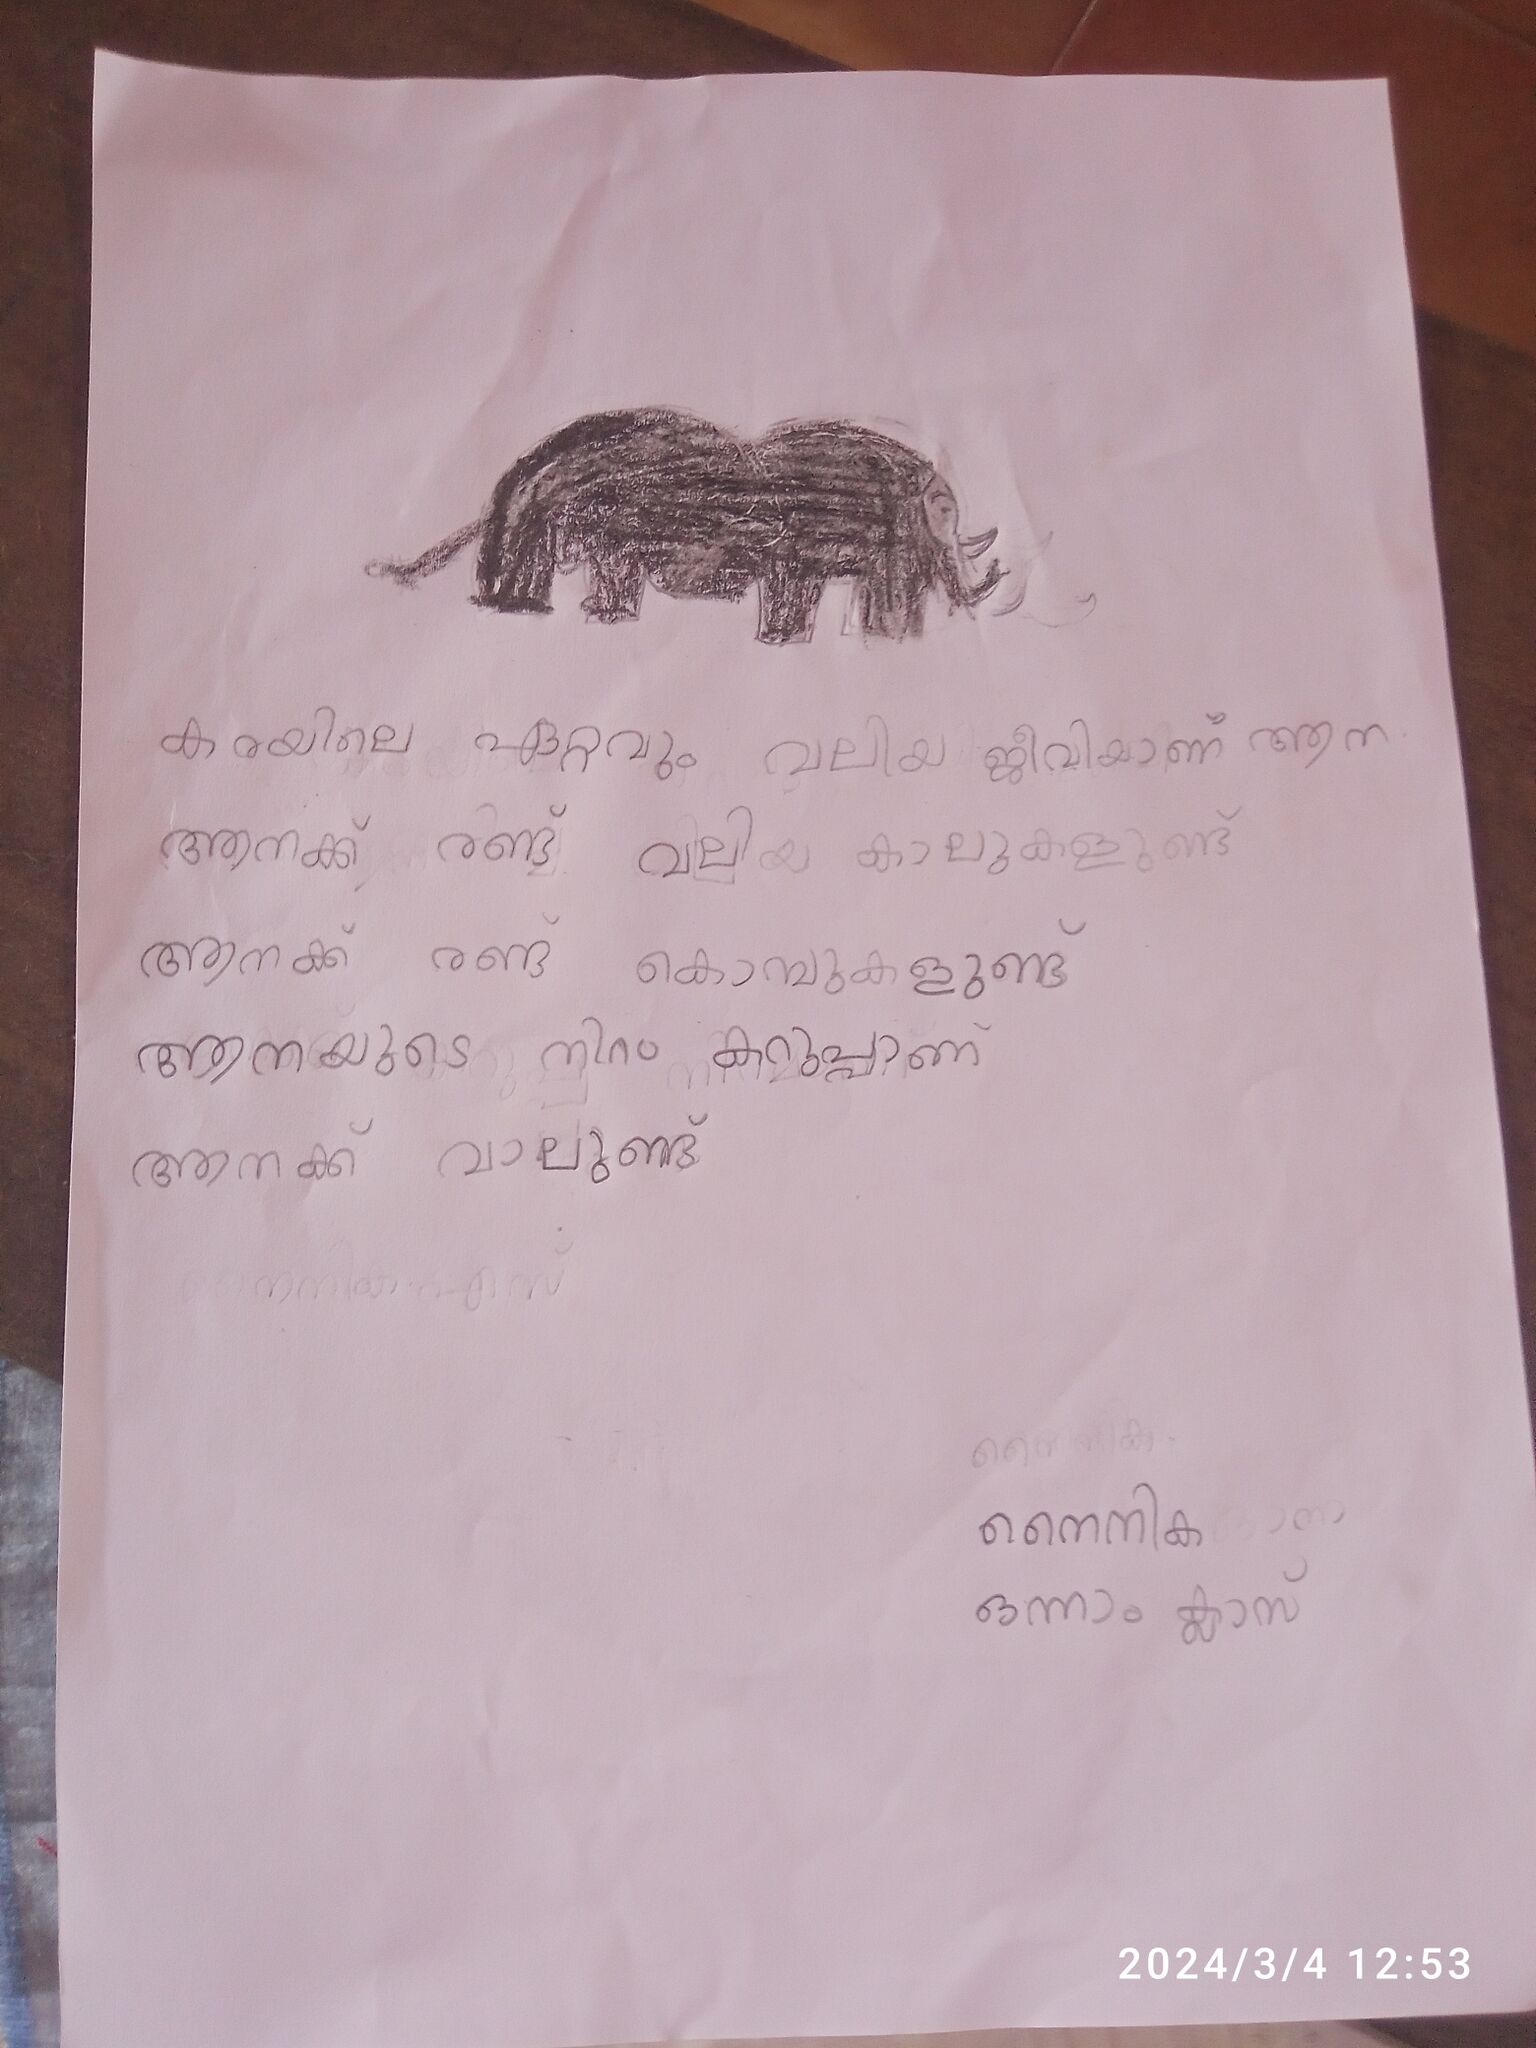 കരയിലെ ഏറ്റവും വലിയ ജീവിയാണ് ആന.
ആനക്ക് രണ്ട് വലിയ കാലുകളുണ്ട്
ആനക്ക് രണ്ട് കൊമ്പുകളുണ്ട്
ആനയുടെ നിറം കറുപ്പാണ്
ആനക്ക് വാലുണ്ട്
നൈനിക എസ്
നൈനിക
നൈനിക
ഒന്നാം ക്ലാസ്
2024/3/4 12:53